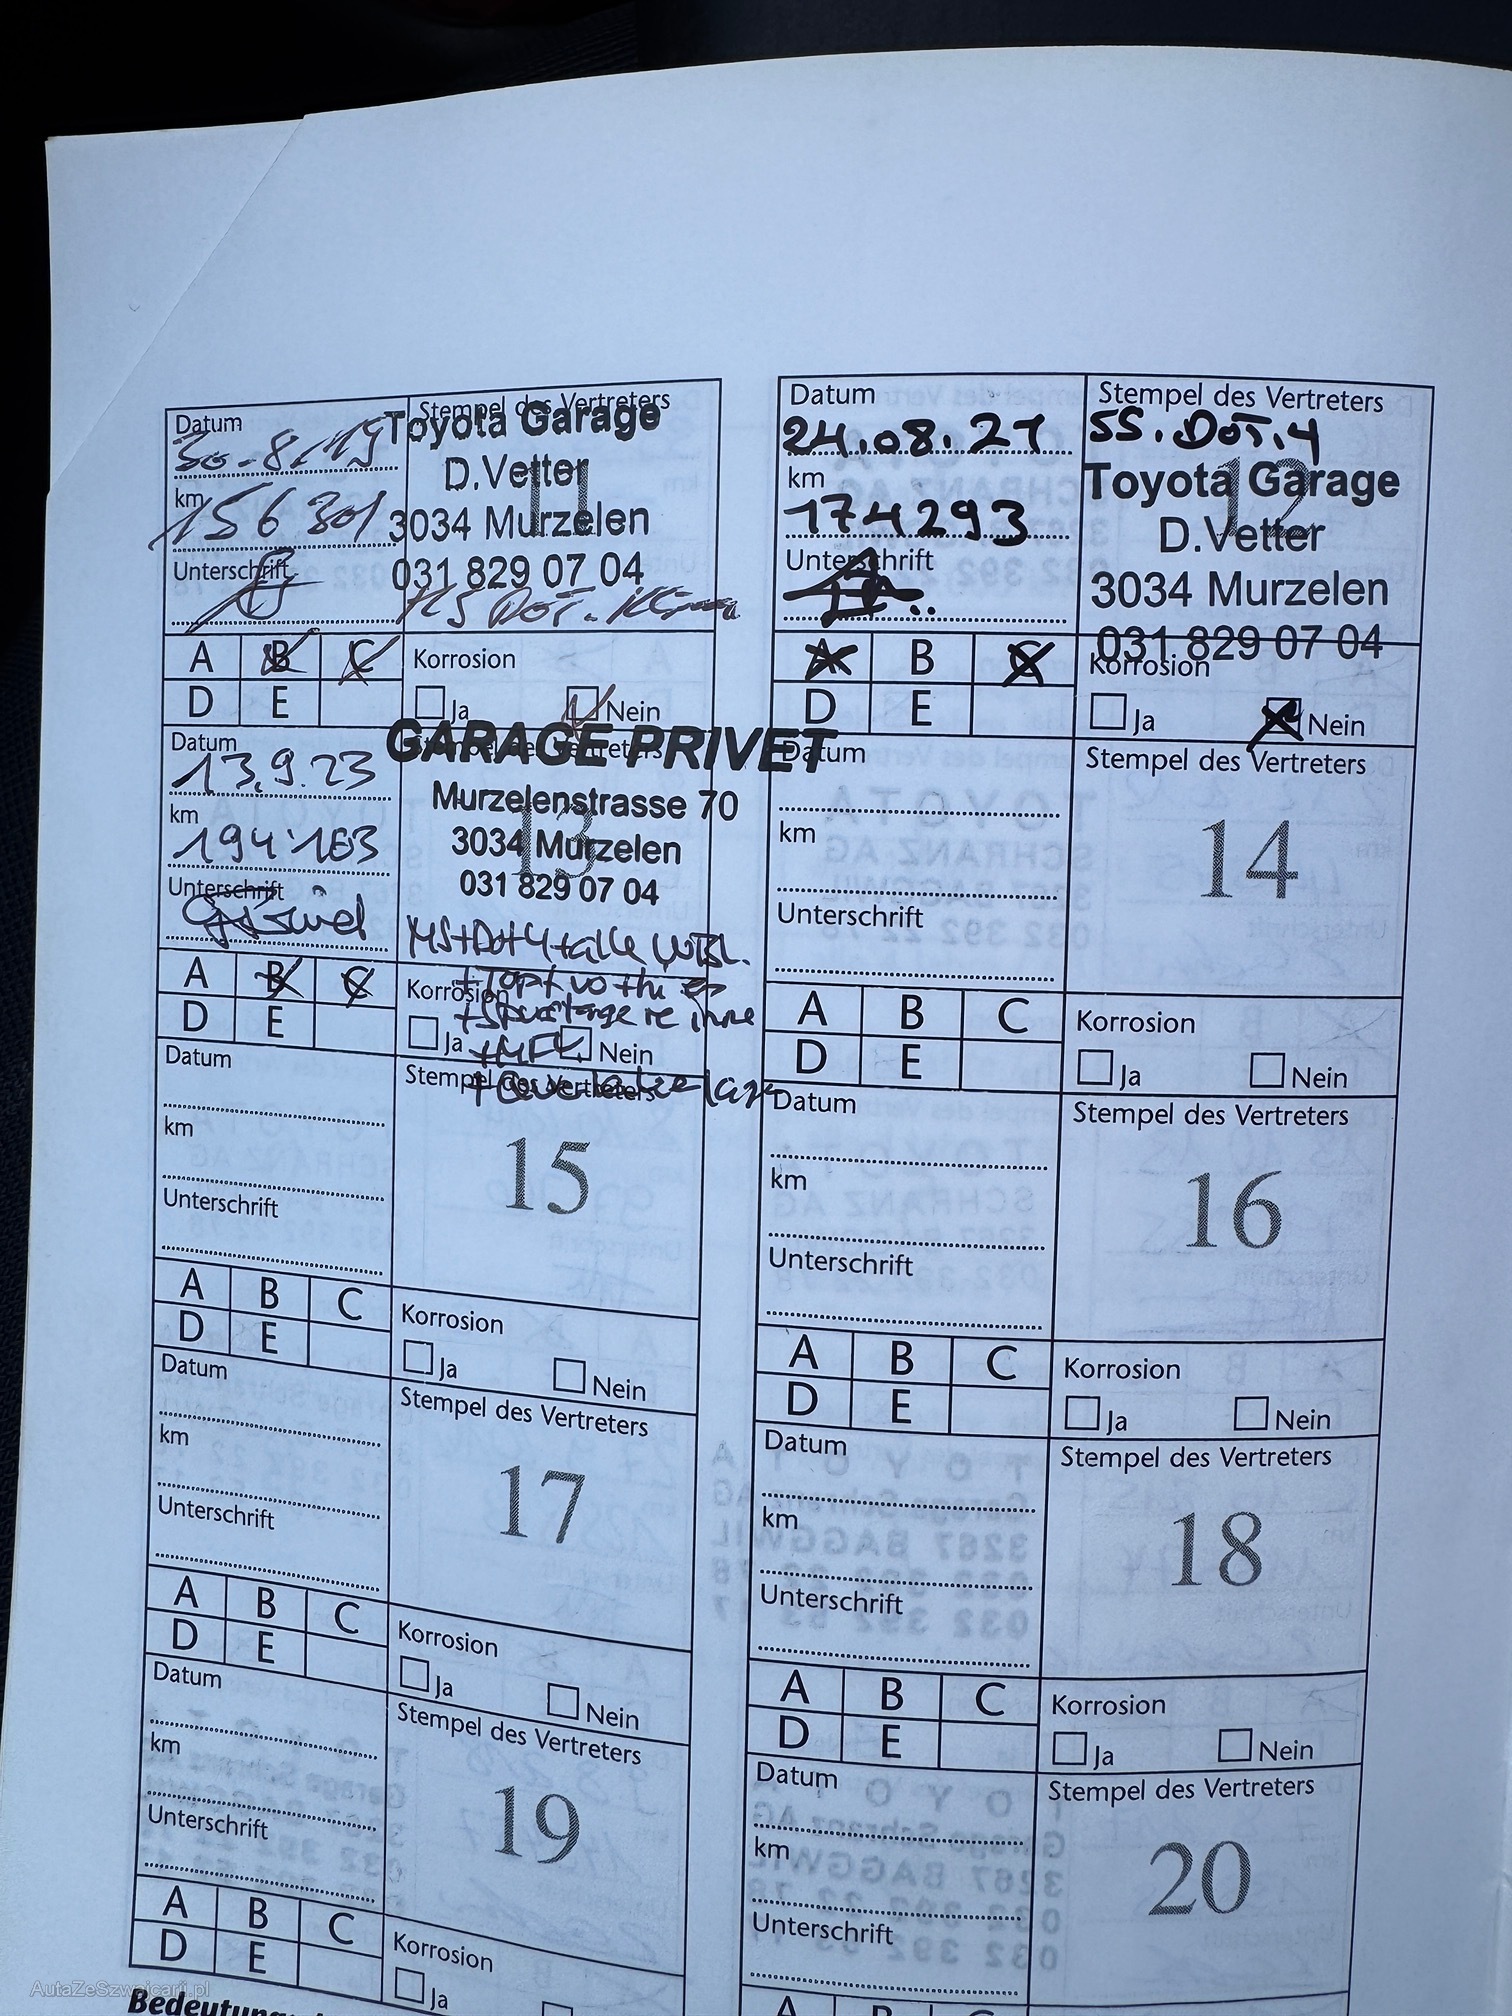 Datum
30.8.19
km
156 301
Unterschrift
Stempel des Vertreters
11
Toyota Garage
D.Vetter
3034 Murzelen
031 829 07 04
A B C
D E
Korrosion
Ja Nein
Datum
24.08.21
km
174293
Unterschrift
Stempel des Vertreters
SS. DOT.4
12
Toyota Garage
D.Vetter
3034 Murzelen
031 829 07 04
A B C
D E
Korrosion
Ja Nein
Datum
13.9.23
km
194'163
Unterschrift
Stempel des Vertreters
13
GARAGE PRIVET
Murzelenstrasse 70
3034 Murzelen
031 829 07 04
A B C
D E
Korrosion
Ja Nein
Datum
km
Unterschrift
Stempel des Vertreters
14
A B C
D E
Korrosion
Ja Nein
Datum
km
Unterschrift
Stempel des Vertreters
15
A B C
D E
Korrosion
Ja Nein
Datum
km
Unterschrift
Stempel des Vertreters
16
A B C
D E
Korrosion
Ja Nein
Datum
km
Unterschrift
Stempel des Vertreters
17
A B C
D E
Korrosion
Ja Nein
Datum
km
Unterschrift
Stempel des Vertreters
18
A B C
D E
Korrosion
Ja Nein
Datum
km
Unterschrift
Stempel des Vertreters
19
A B C
D E
Korrosion
Ja
Datum
km
Unterschrift
Stempel des Vertreters
20
A B C
AutaZeSzwajcarii.pl